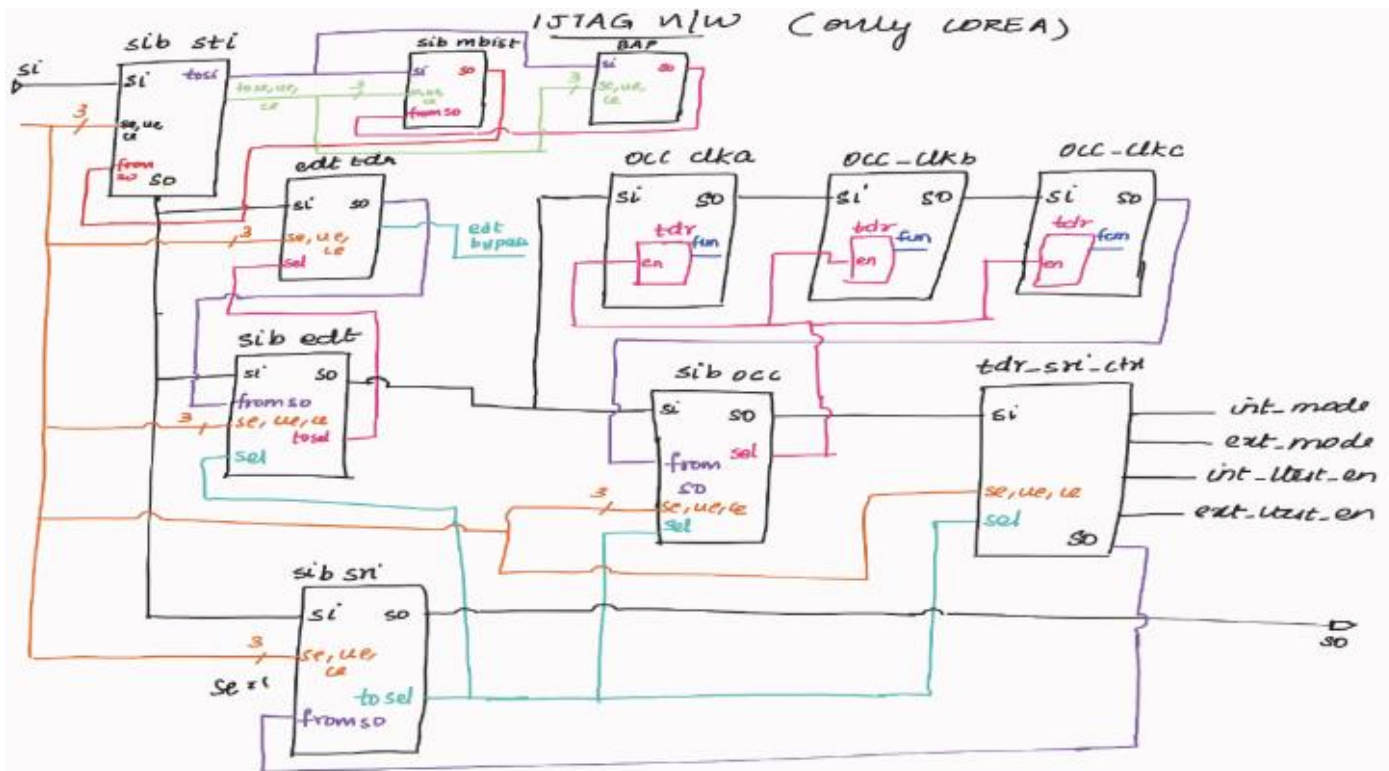 IJTAG n/w (only COREA)
sib sti
sib mbist
BAP
si
si
tosi
se,ue,
ce
3
from
so
so
to se,ue,
ce
3
si
so
from so
3
si
so
se,ue,
ce
edt tdr
si
so
3
se,ue,
ce
sel
edt
bypass
occ clka
si
so
tdr
en
fun
occ_clkb
si
so
tdr
en
fun
occ_clkc
si
so
tdr
en
fun
sib edt
si
so
from so
3
se, ue, ce
to sel
sel
sib occ
si
so
sel
from
so
3
se,ue,ce
sel
tdr_sri_ctrl
si
se,ue, ce
sel
so
int_mode
ext_mode
int_ltest_en
ext_ltest_en
sib sri
si
so
3
se, ue,
ce
to sel
from so
so